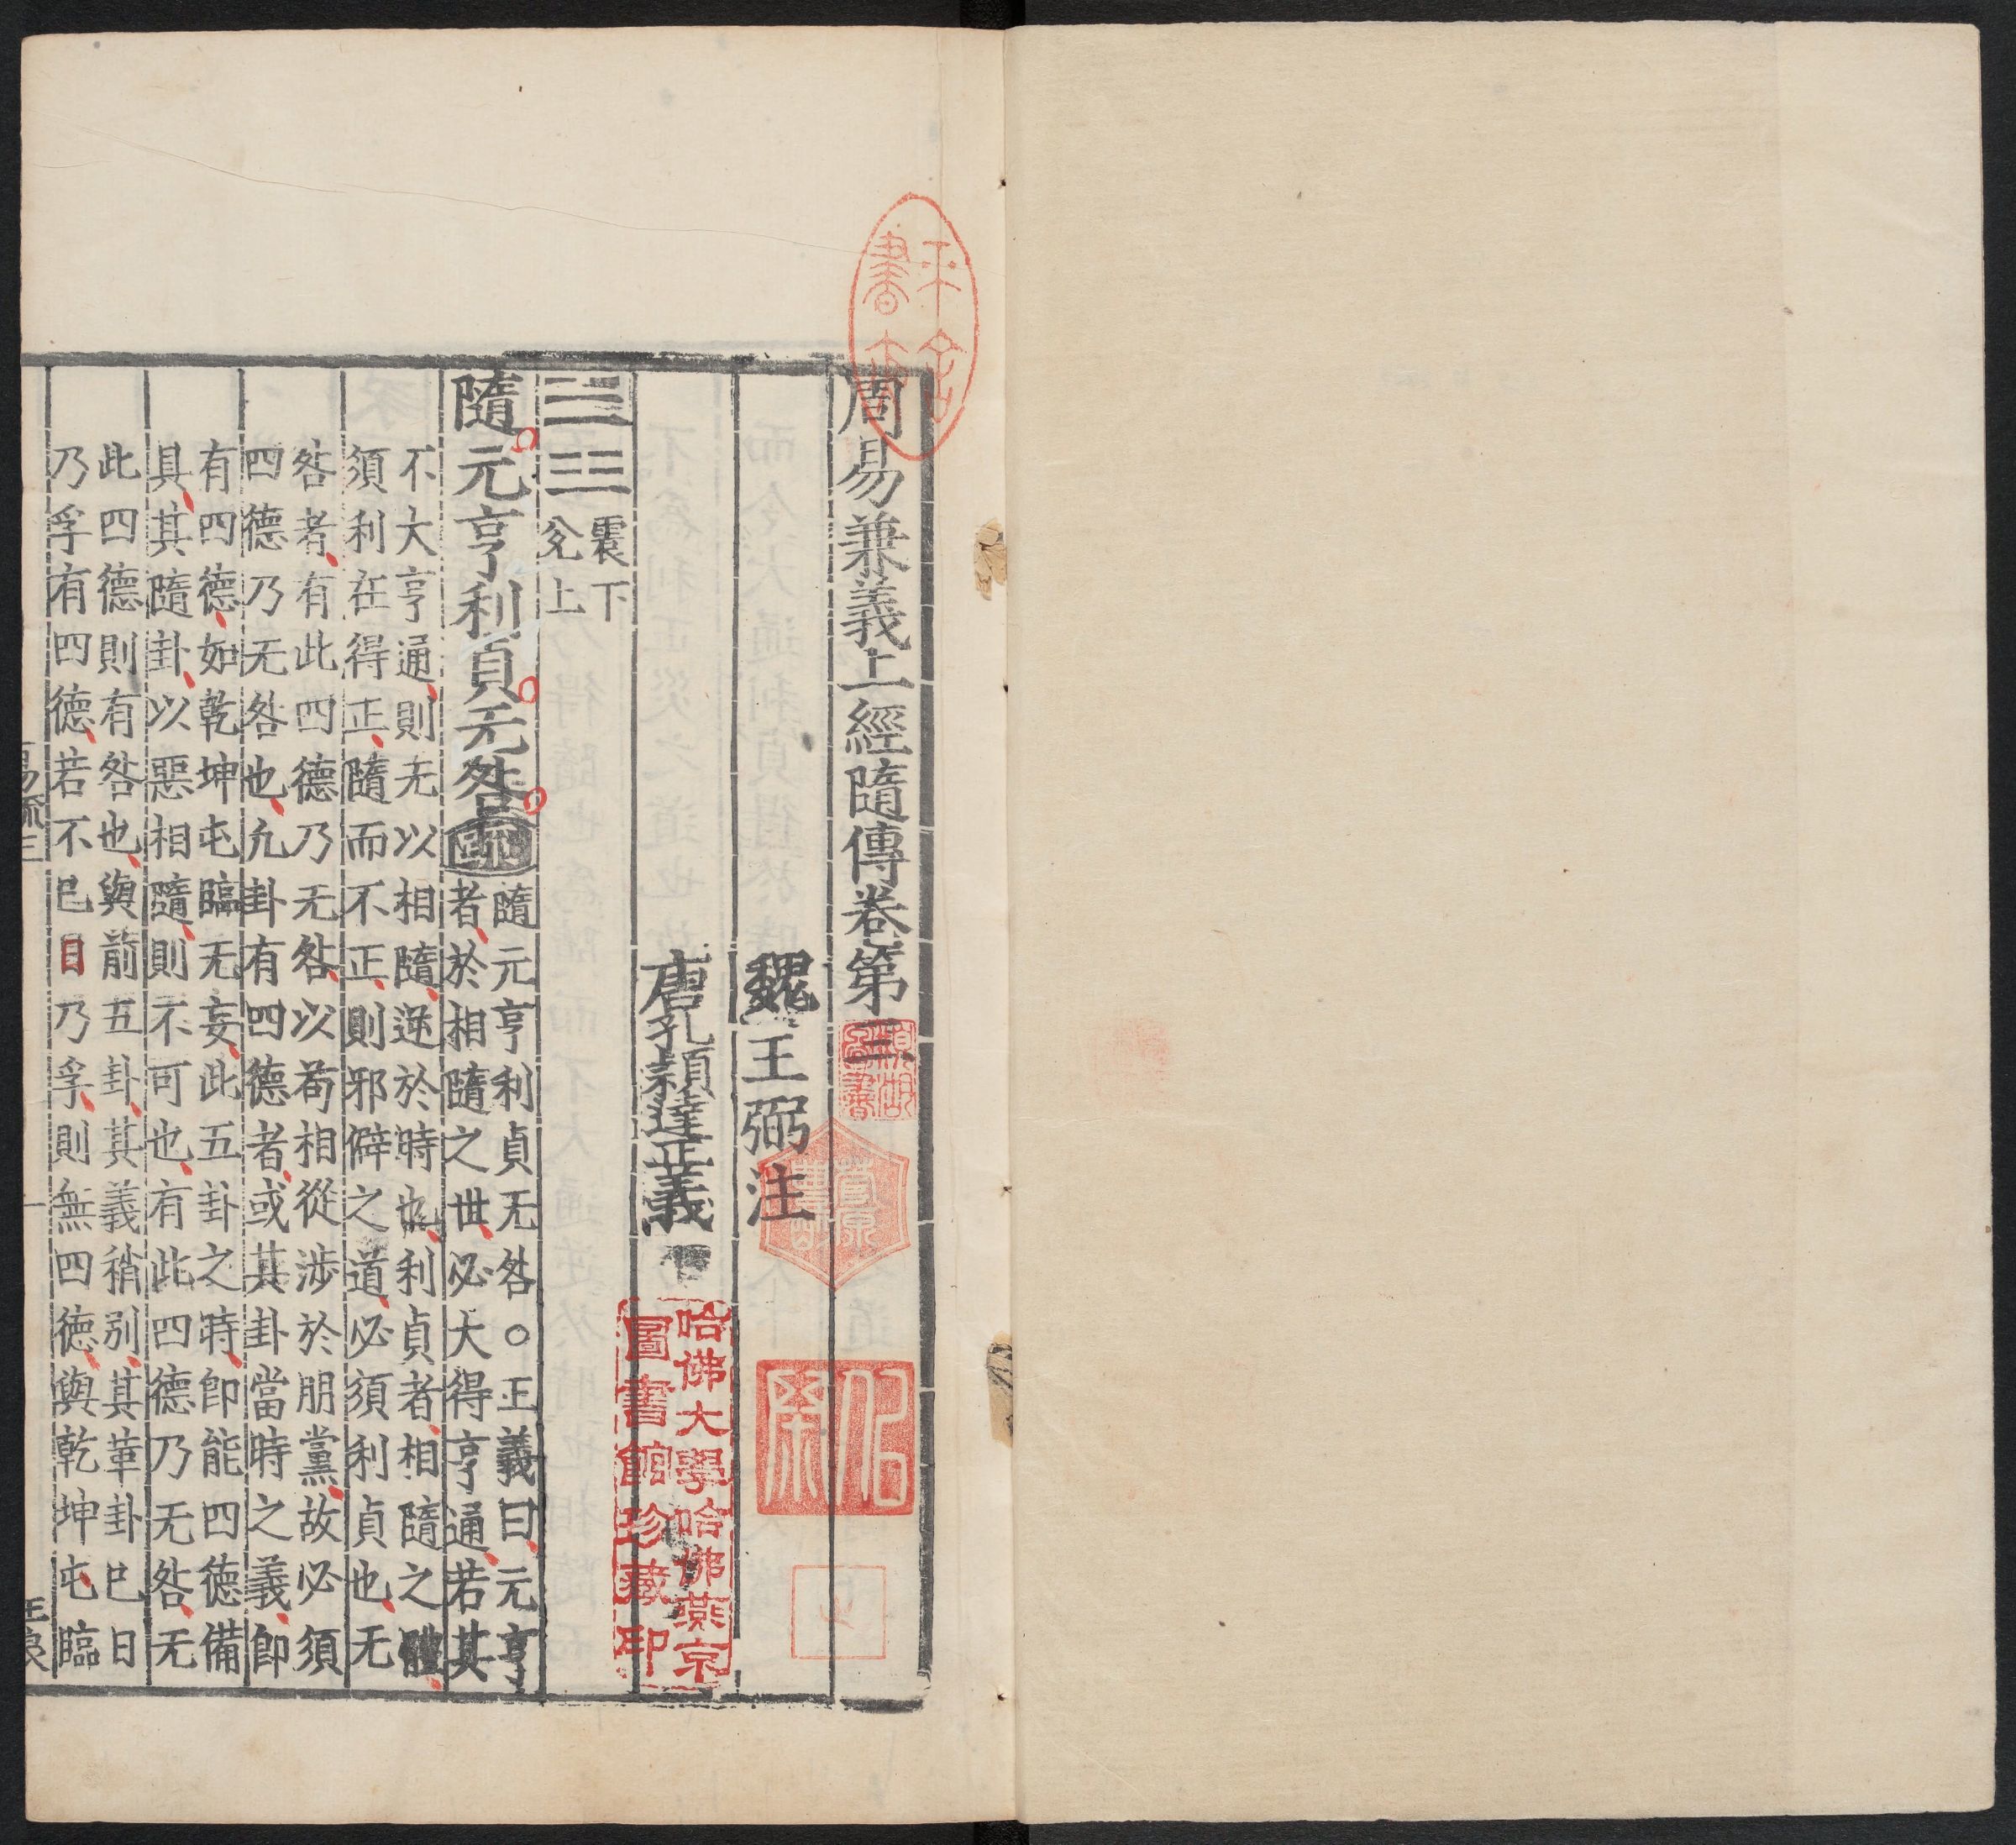 周易兼義上經隨傳卷第三
魏王弼注
唐孔穎達正義
震下
兌上
隨元亨利貞无咎疏
隨元亨利貞无咎○正義曰元亨
者於相隨之世必大得亨通若其
不大亨通則无以相隨逆於時也利貞者相隨之體
須利在得正隨而不正則邪僻之道必須利貞也无
咎者有此四德乃无咎以苟相從涉於朋黨故必須
四德乃无咎也凢卦有四德者或其卦當時之義即
有四德如乾坤屯臨无妄此五卦之時即能四德備
具其隨卦以惡相隨則不可也有此四德乃无咎无
此四德則有咎也與前五卦其義稍别其革卦巳日
乃孚有四德若不巳日乃孚則無四德與乾坤屯臨
易疏三
一
王良
哈佛大學哈佛燕京
圖書館珍藏印